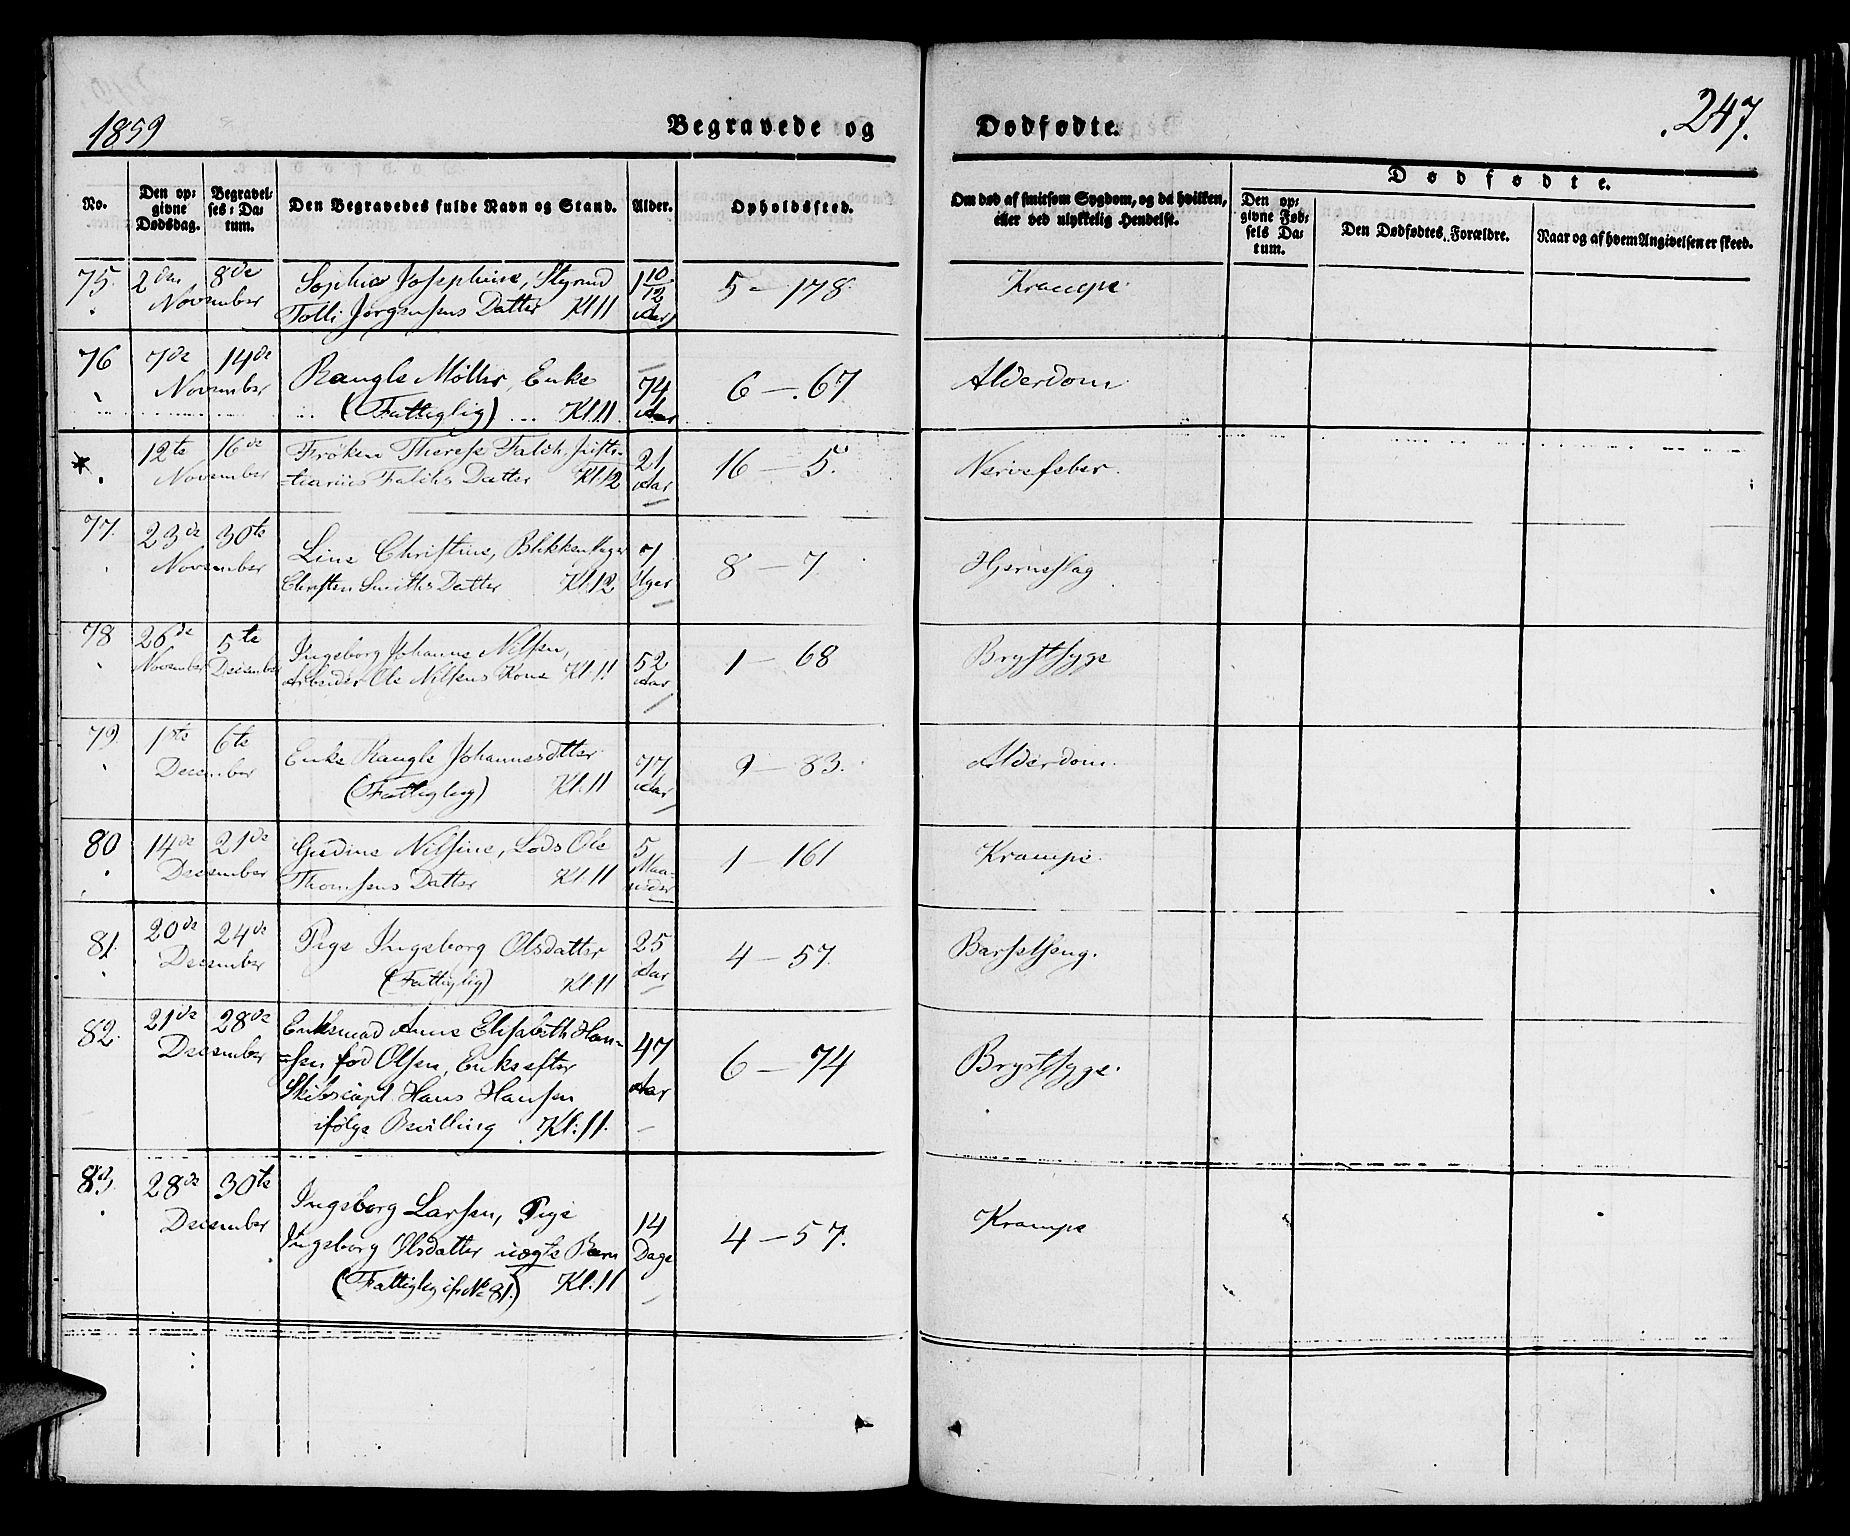 1859
Begravede og Dødfødte.
247.
No.
Den op-
givne
Dødsdag.
Begravel-
ses-Da-
tum.
Den Begravedes fulde Navn og Stand.
Alder.
Opholdssted.
Om død af smitsom Sygdom, og da hvilken,
eller ved ulykkelig Hendelse.
Dødfødte.
Den op-
givne Fød-
sels Da-
tum.
Den Dødfødtes Forældre.
Naar og af hvem Angivelsen er skeed.
75. 2den 8de Sophie Josephine, Styrmd 1 10/12 5 - 178. Krampe.
November Tolli Jørgensens Datter Kl 11 Aar
76 7de 14de Rangle Møller, Enke 74 6 - 67. Alderdom.
November (Fattiglig) Kl. 11. Aar
12te 16de Frøken Therese Falch, Justi- 21 16 - 5. Nervefeber.
November =tiarius Falchs Datter Kl. 12 Aar
77. 23de 30te Line Christine, Blikkenslager 7 8 - 7. Hjerneslag
November Christen Smiths Datter Kl. 12 Uger
78 26de 5te Ingeborg Johanne Nilsen, 52 1 - 68 Brystsyge
November December Arbeider Ole Nilsens Kone Kl. 11 Aar
79. 1ste 6te Enke Rangle Johannesdtter 77 9 - 83. Alderdom.
December (Fattiglig) Kl. 11 Aar
80 14de 21de Gudine Nilsine, Lods Ole 5 1 - 161 Krampe.
December Thomsens Datter Kl. 11 Maa-
neder
81. 20de 24de Pige Ingeborg Olsdatter 25 4 - 57. Barselseng.
December (Fattiglig) Kl. 11 Aar
82. 21de 28de Enkemad Anne Elisabeth Han- 47 6 - 74 Brystsyge.
December =sen fød Olsen, Enke efter Aar
Skibscapt. Hans Hansen
ifølge Bevilling Kl: 11.
83. 28de 30te Ingeborg Larsen, Pige 14 4 - 57. Krampe
December Ingeborg Olsdatter uægte Barn Dage
(Fattiglig if No 81.) Kl. 11